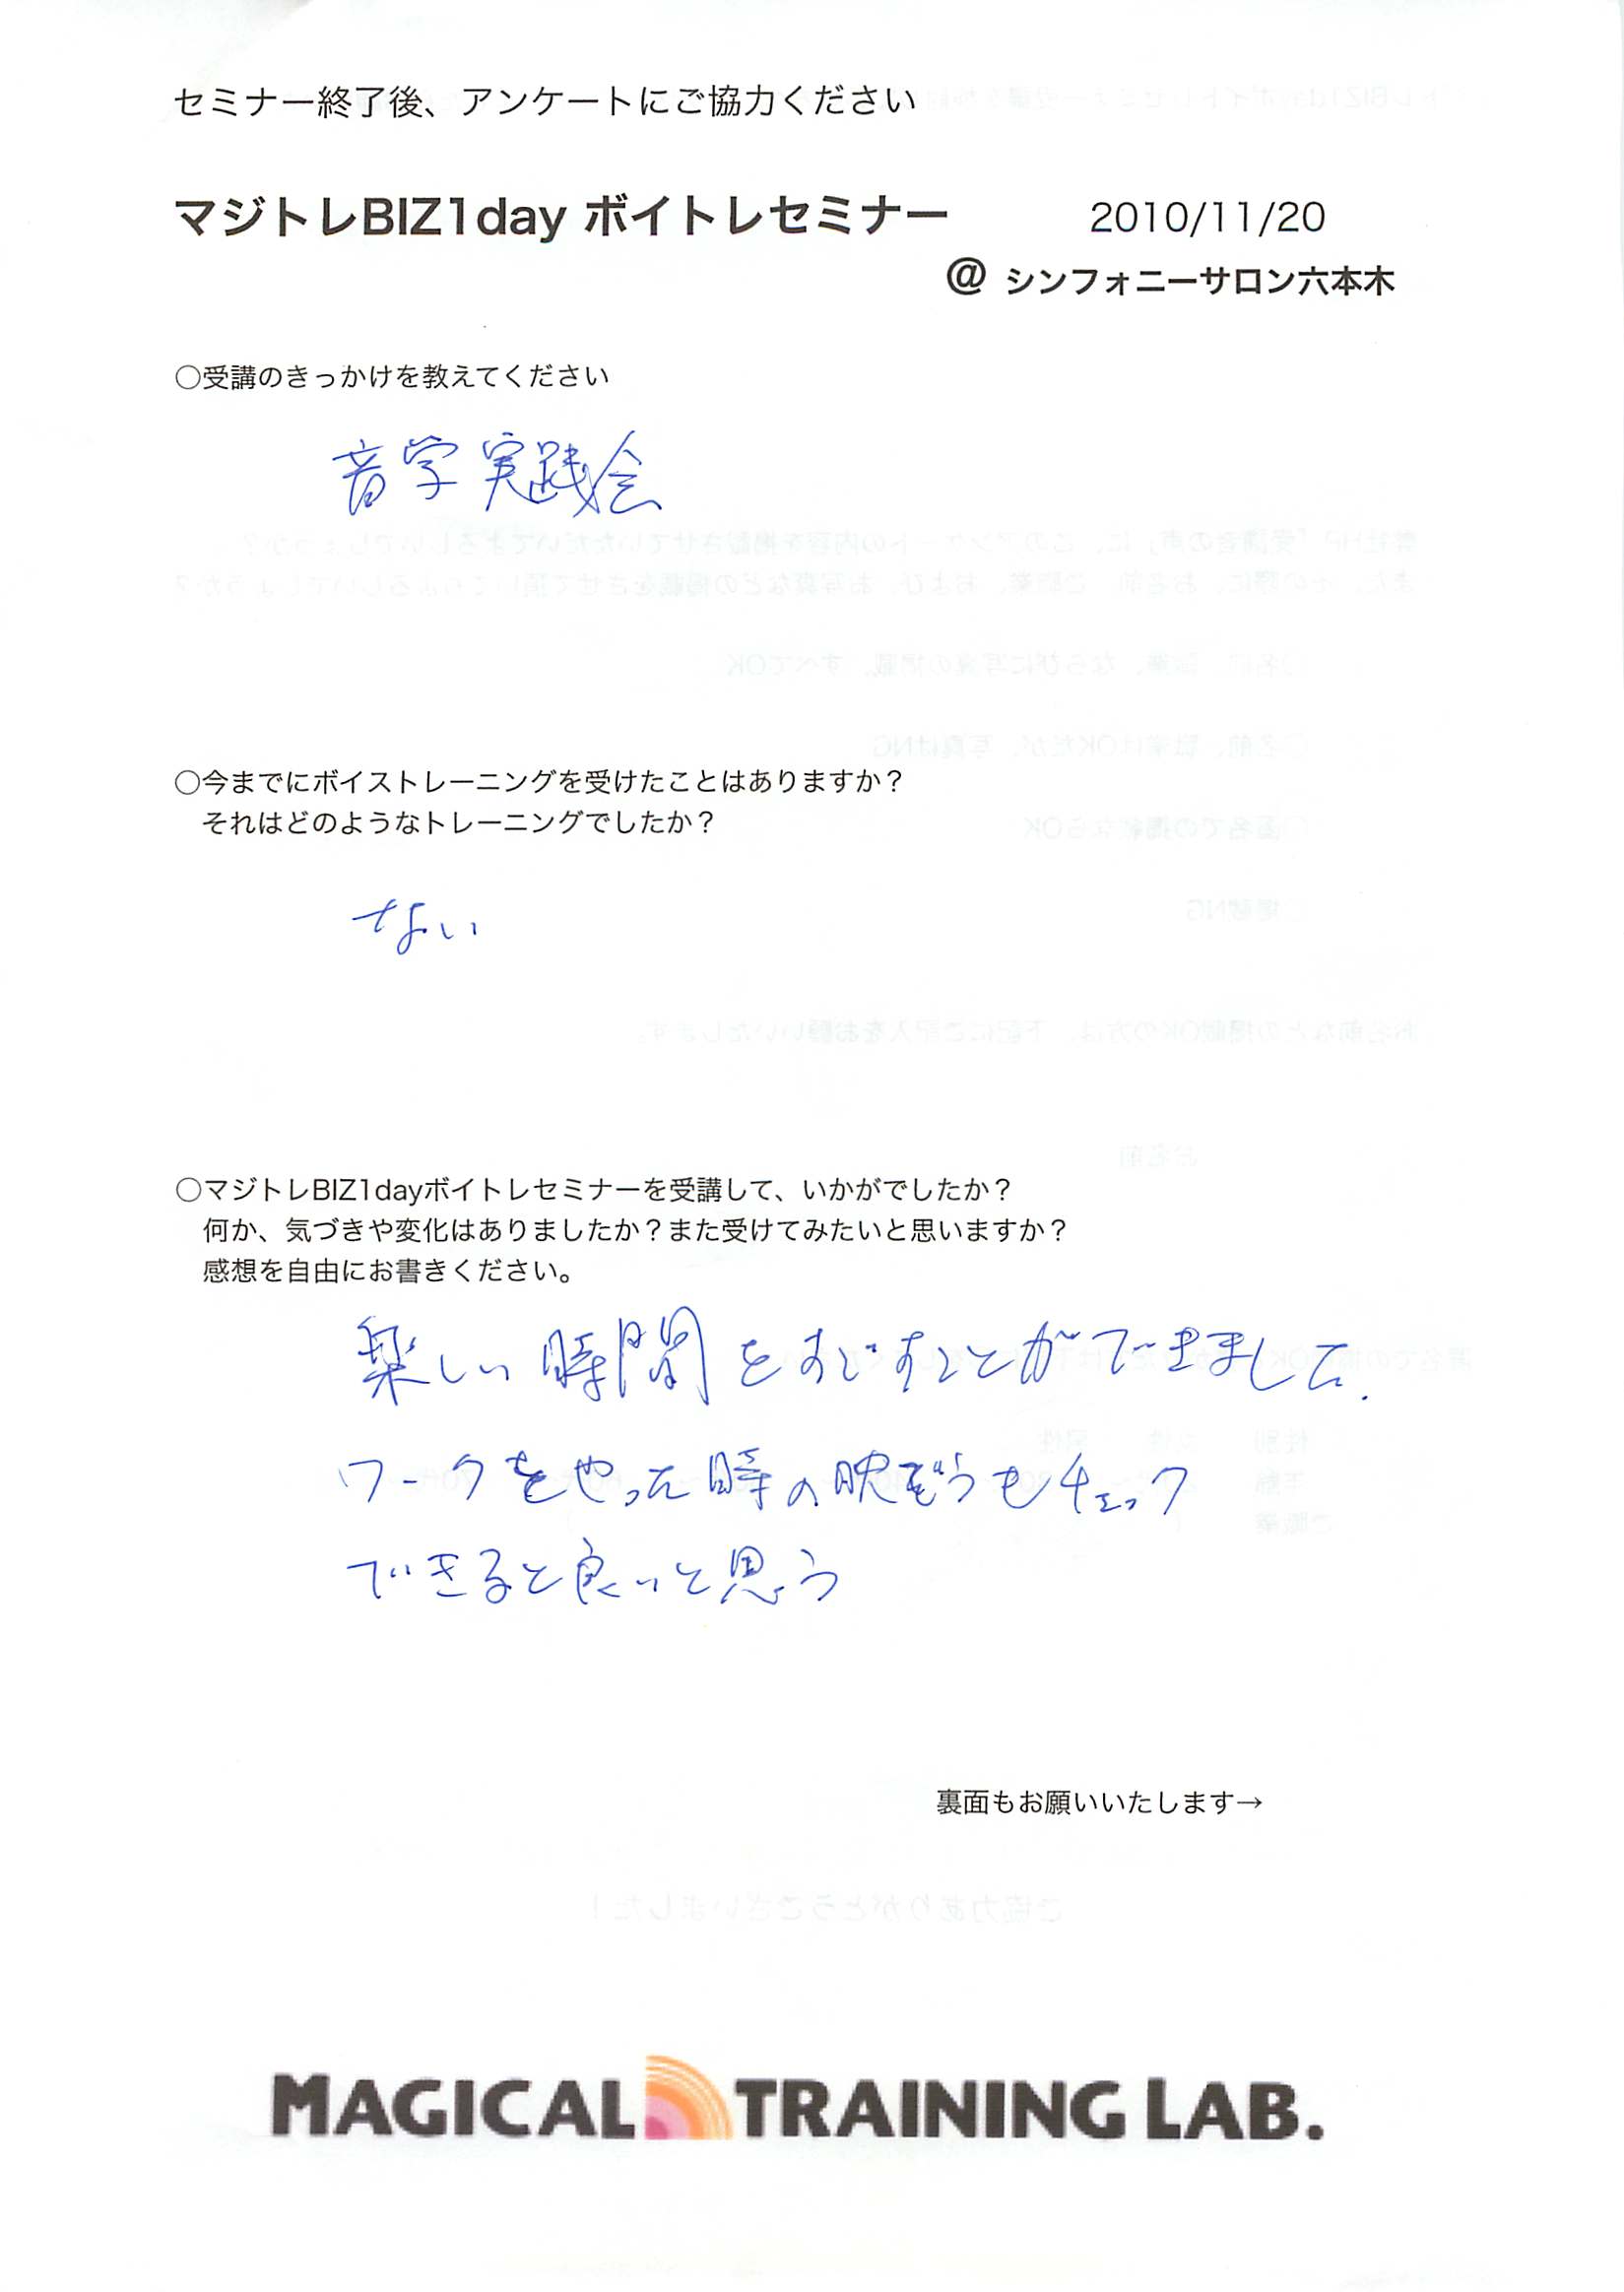 セミナー終了後、アンケートにご協力ください
マジトレBIZ1day ボイトレセミナー 2010/11/20
@ シンフォニーサロン六本木
○受講のきっかけを教えてください
音学実践会
○今までにボイストレーニングを受けたことはありますか？
それはどのようなトレーニングでしたか？
ない
○マジトレBIZ1dayボイトレセミナーを受講して、いかがでしたか？
何か、気づきや変化はありましたか？また受けてみたいと思いますか？
感想を自由にお書きください。
楽しい時間をすごすことができました.
ワークをやった時の映ぞうもチェック
できると良いと思う
裏面もお願いいたします→
ご協力ありがとうございました！
MAGICAL TRAINING LAB.